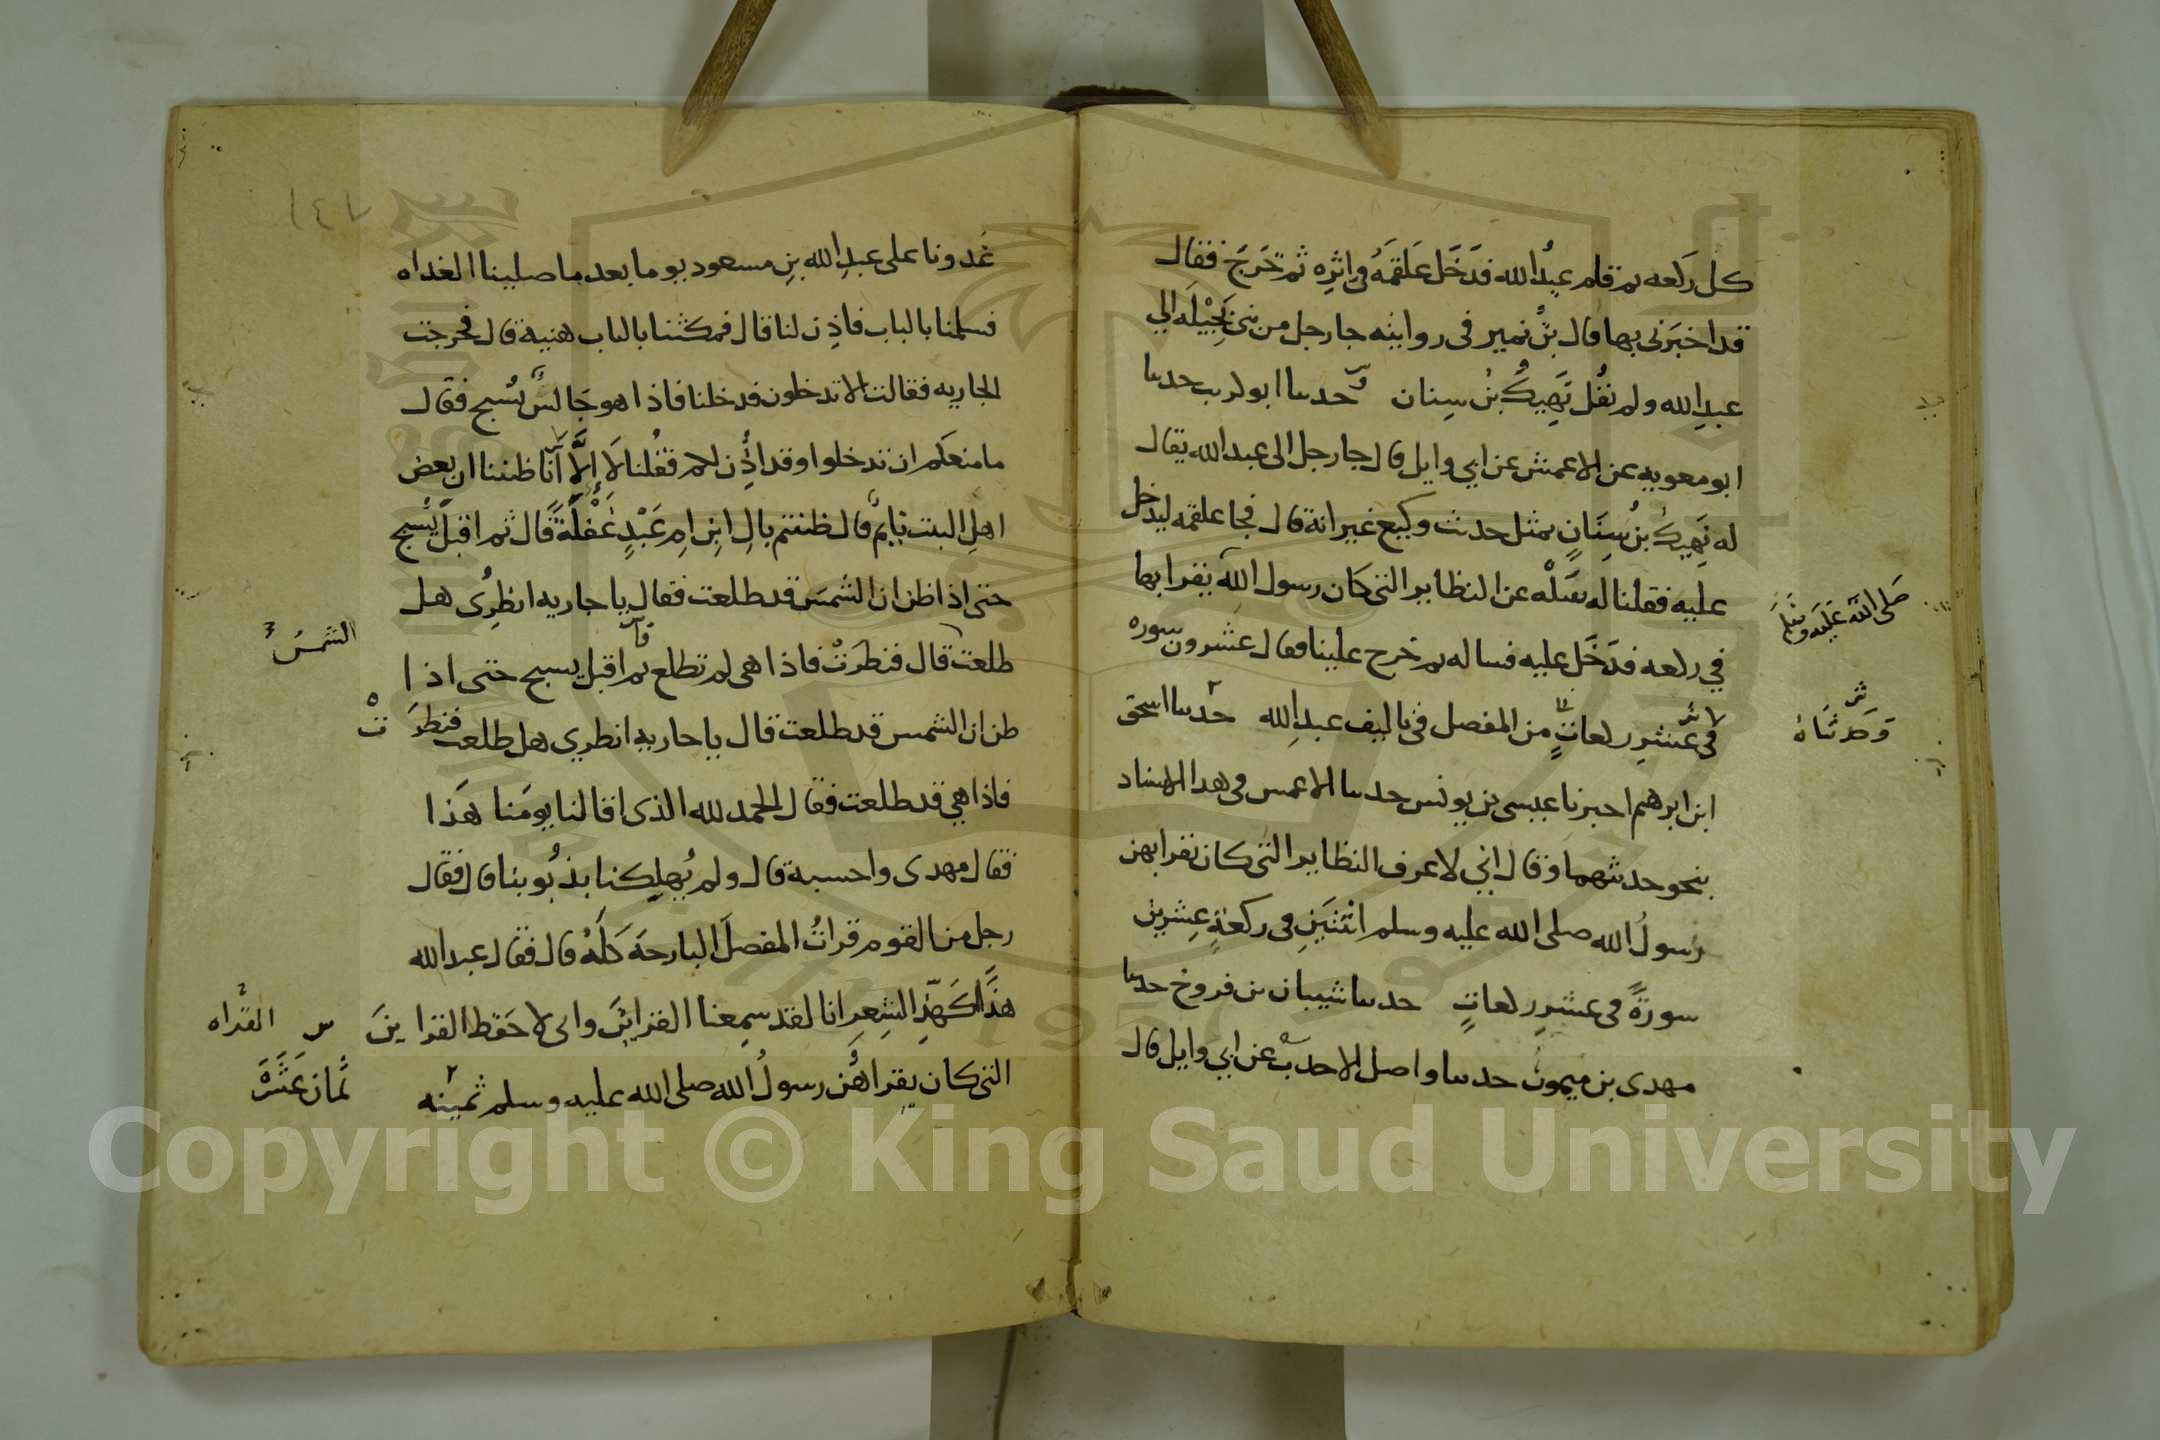 كل ركعه ثم قام عبدُ الله فدَخَل عَلقمَهُ في اثِرِه ثم خَرَجَ فقال
قد اخبرَني بها قال بنُ نمير في روايته جا رجل من بني بَجِيْلَه الي
عبدِ الله ولم يقُل نَهِيكُ بنُ سِنان وحدسا ابو كريب حدسا
ابو معويه عن الاعمش عن ابي وايل قال جا رجل الى عبد الله يقال
له نَهِيكُ بنُ سِنَانٍ بمثل حدث وكيع غير انهُ قال فجا علقمه ليدخل
عليه فقلنا له سَلْه عن النظاير التي كان رسول الله يقرا بها
صَلى اللهُ عَليَه وسَلَّمَ
في ركعه فدَخَل عليه فساله ثم خرج علينا فقال عشرون سوره
في عشرِ ركعاتٍ من المفصل في تاليف عبدِ الله حدسا اسحق
وحدثناهُ
ابن ابرهيم اخبرنا عيسى بن يونس حدسا الاعمس في هدا الاسناد
بنحو حديثهما وقال اني لاعرف النظاير التي كان يقرا بهن
رسولُ الله صلى الله عليه وسلم اثنَتَينِ في ركعةٍ عِشرين
سورةً في عشرِ ركعاتٍ حدسا شيبان بن فروخ حدسا
مهدى بن ميمون حدسا واصل الاحدب عن ابي وايل قال
١٤٧
غَدونا على عبدِ الله بنِ مسعود يوما بعد ما صلينا الغداه
فسلمنا بالباب فاذِن لنا قال فمكثنا بالباب هنية قال فخرجت
الجاريه فقالت الا تدخلون فدخلنا فاذا هو جَالسٌ يُسبح فقال
ما منعكم ان تدخلوا وقد اذِن لكم فقُلنا لا إلَّا أنّا ظننا ان بعض
اهلِ البيت نايمٌ قال ظننتم بالِ ابنِ امِ عَبْدٍ غَفْلَةً قال ثم اقبلَ يُسبح
حتى اذا ظن ان الشمسَ قد طلعت فقال يا جاريه انظرِى هل
طلعت قال فنظرَتْ فاذا هي لم تطلع ثم اقبل يسبح حتى اذا
الشمسُ
ظن ان الشمس قد طلعت قال يا جاريه انظري هل طلعت فنظرَتْ
فاذا هي قد طلعت فقال الحمد لله الذى اقالنا يومَنا هَذا
فقال مهدى واحسبه قال ولم يُهلِكنا بذُنُوبنا قال فقال
رجل من القوم قراتُ المفصلَ البارحَة كلَّهُ قال فقال عبد الله
هَذًّا كَهَذِّ الشِعرِ انا لقد سمِعنا القراينَ واني لاحفظ القراينَ
القراه
التي كان يقراهُن رسولُ الله صلى الله عليه وسلم ثمينه
ثمانَ عَشَرَةَ
Copyright © King Saud University